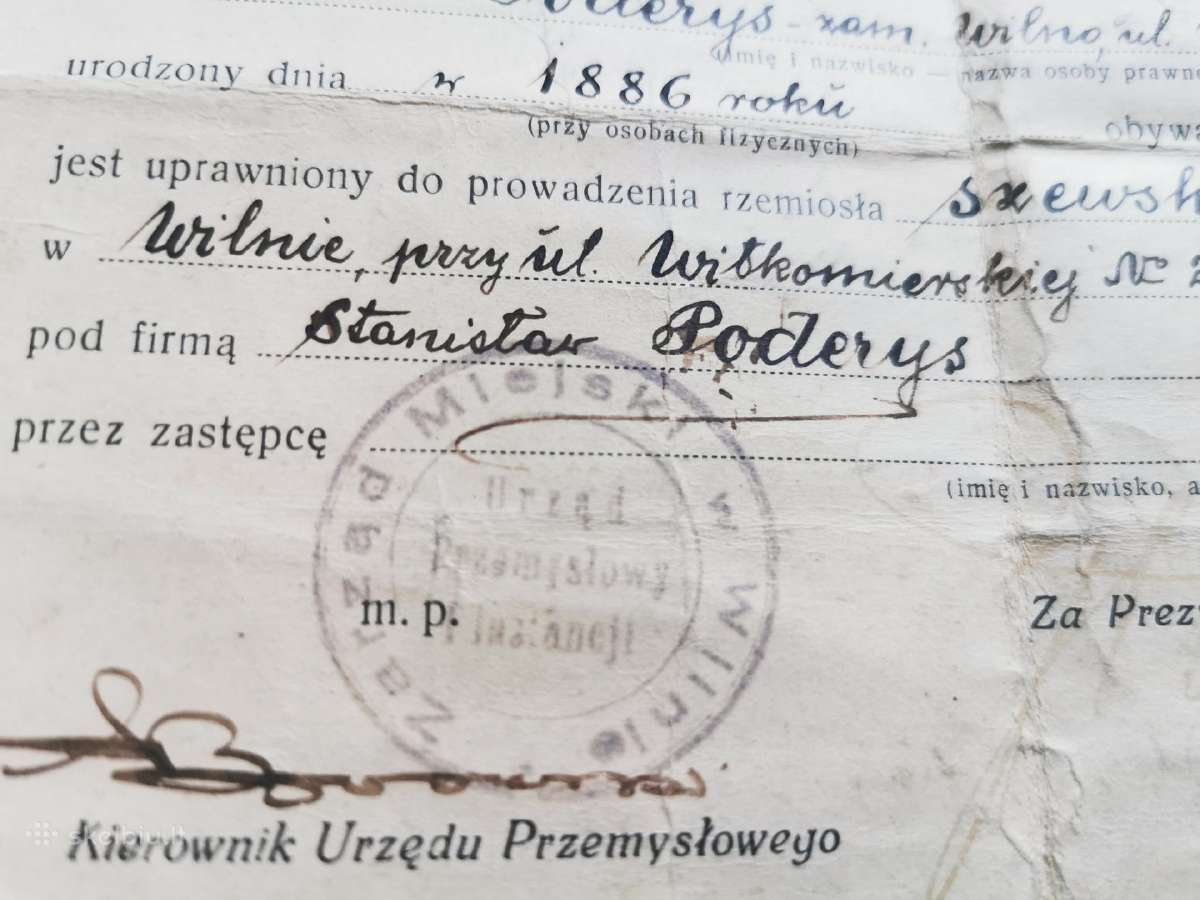 Poderys - zam. Wilno, ul.
(imię i nazwisko — nazwa osoby prawne
urodzony dnia w 1886 roku
(przy osobach fizycznych)
obywa
jest uprawniony do prowadzenia rzemiosła szewsk
w Wilnie, przy ul. Wiłkomierskiej №
pod firmą Stanisław Poderys
przez zastępcę
(imię i nazwisko, a
Zarząd Miejski w Wilnie
Urząd
Przemysłowy
I Instancji
m. p.
Za Prez
Kierownik Urzędu Przemysłowego
skelbiu.lt